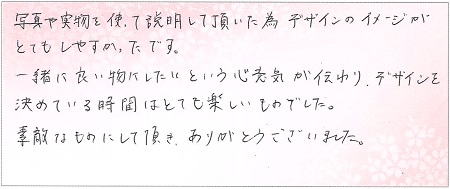 写真や実物を使って説明して頂いた為 デザインのイメージが
とてもしやすかったです。
一緒に良い物にしたいという心意気が伝わり、デザインを
決めている時間はとても楽しいものでした。
素敵なものにして頂き、ありがとうございました。